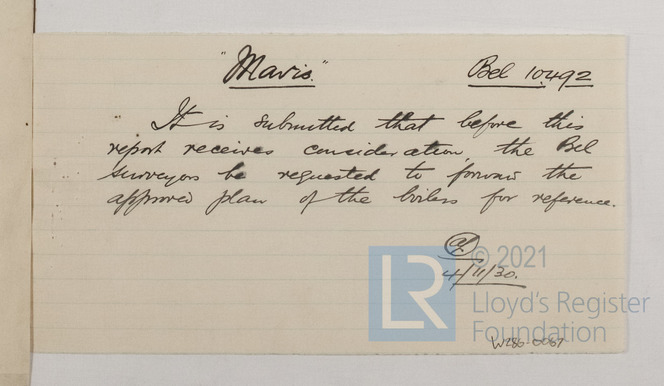 "Mavis." Bel 10492
It is submitted that before this
report receives consideration, the Bel
surveyors be requested to forward the
approved plan of the boilers for reference.
4/11/30.
© 2021
LR
Lloyd's Register
Foundation
W286-0067